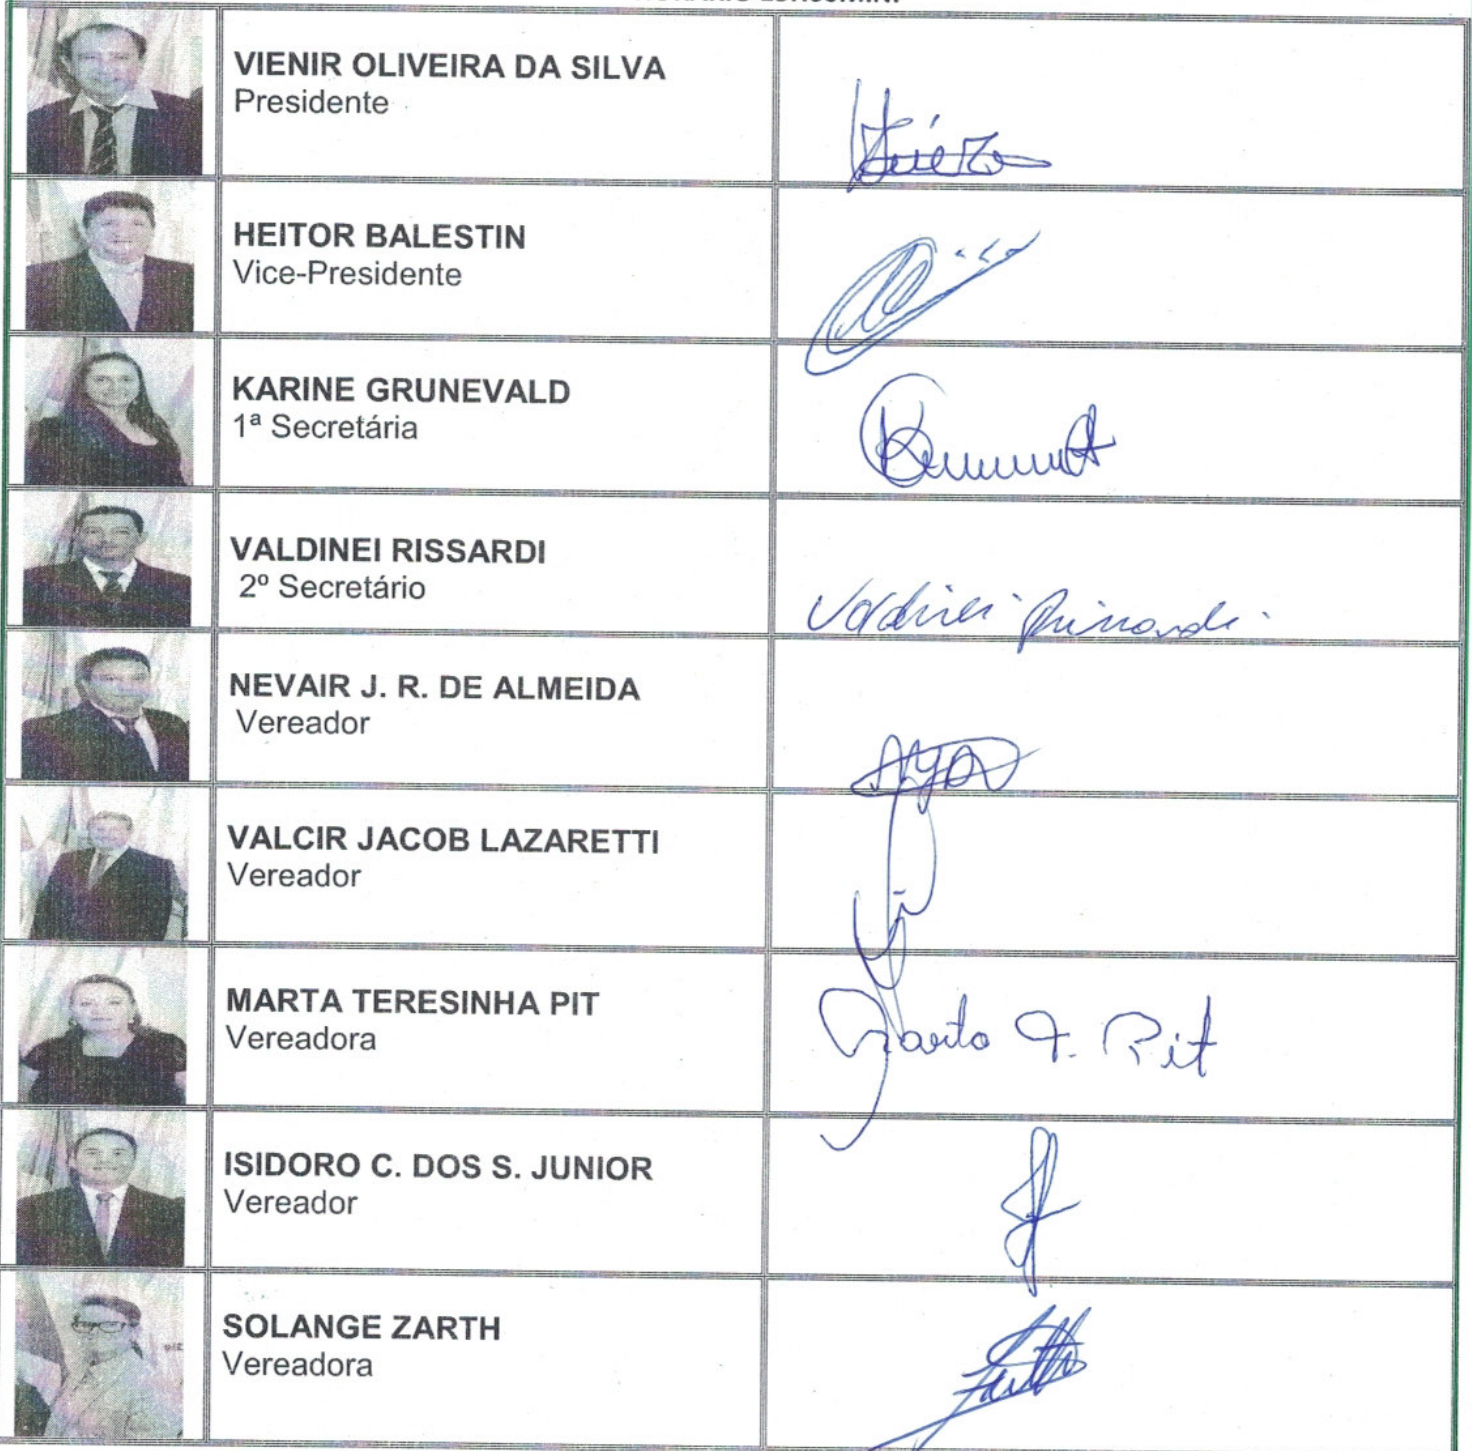 VIENIR OLIVEIRA DA SILVA
Presidente
HEITOR BALESTIN
Vice-Presidente
KARINE GRUNEVALD
1ª Secretária
VALDINEI RISSARDI
2º Secretário
Valdinei Rissardi
NEVAIR J. R. DE ALMEIDA
Vereador
VALCIR JACOB LAZARETTI
Vereador
MARTA TERESINHA PIT
Vereadora
Marta T. Pit
ISIDORO C. DOS S. JUNIOR
Vereador
SOLANGE ZARTH
Vereadora
Zarth